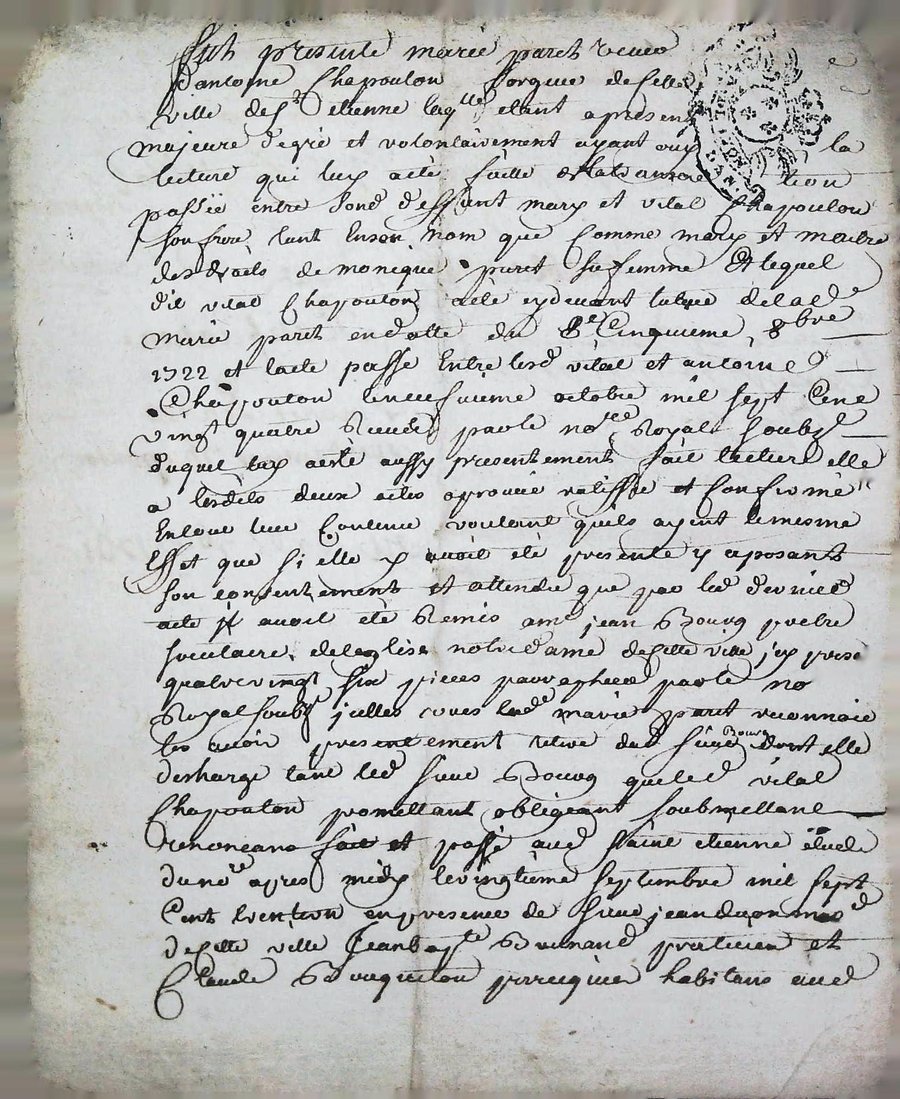 fut presente marie paret veuve
d'antoine Chapoulon forgeur de cette
ville de St etienne laqlle etant a present
majeure de gré et volontairement ayant ouy la
lecture qui luy a été faitte de la
passée entre sond deffunt mary et vital Chapoulon
son frere tant en son nom que comme mary et maitre
des droits de monique paret sa femme Et lequel
dit vital Chapoulon a été cydevant de lad
marie paret en datte du Cinquieme 8bre
1722 et l'acte passé Entre lesd vital et antoine
Chapoulon le neufvieme octobre mil sept Cent
vingt quatre Receu par le nore Royal soubzé
duquel luy a esté aussy presentement fait lecture elle
a lesdits deux actes aprouvé ratiffié et confirmé
En tout leur Contenu voulant quils ayent le mesme
Effet que si elle y avoit été presente y aposant
son consentement et attendu que par led dernier
acte il avoit été Remis a me jean Bourg prebtre
sociétaire de l'eglise notre dame de cette ville
quatre vingt six pieces paraphées par le no
Royal soubzé icelles lad marie paret reconnoit
les avoir presentement retiré dud sieur Bourg dont elle
descharge tant led sieur Bourg que led vital
Chapoulon promettant obligeant soubmettant
renoncant fait et passé aud saint etienne étude
du nore apres midy le vingtieme septembre mil sept
Cent trente en presence de sieur jean md
de cette ville Jean bapte praticien et
Claude peruquier habitans aud